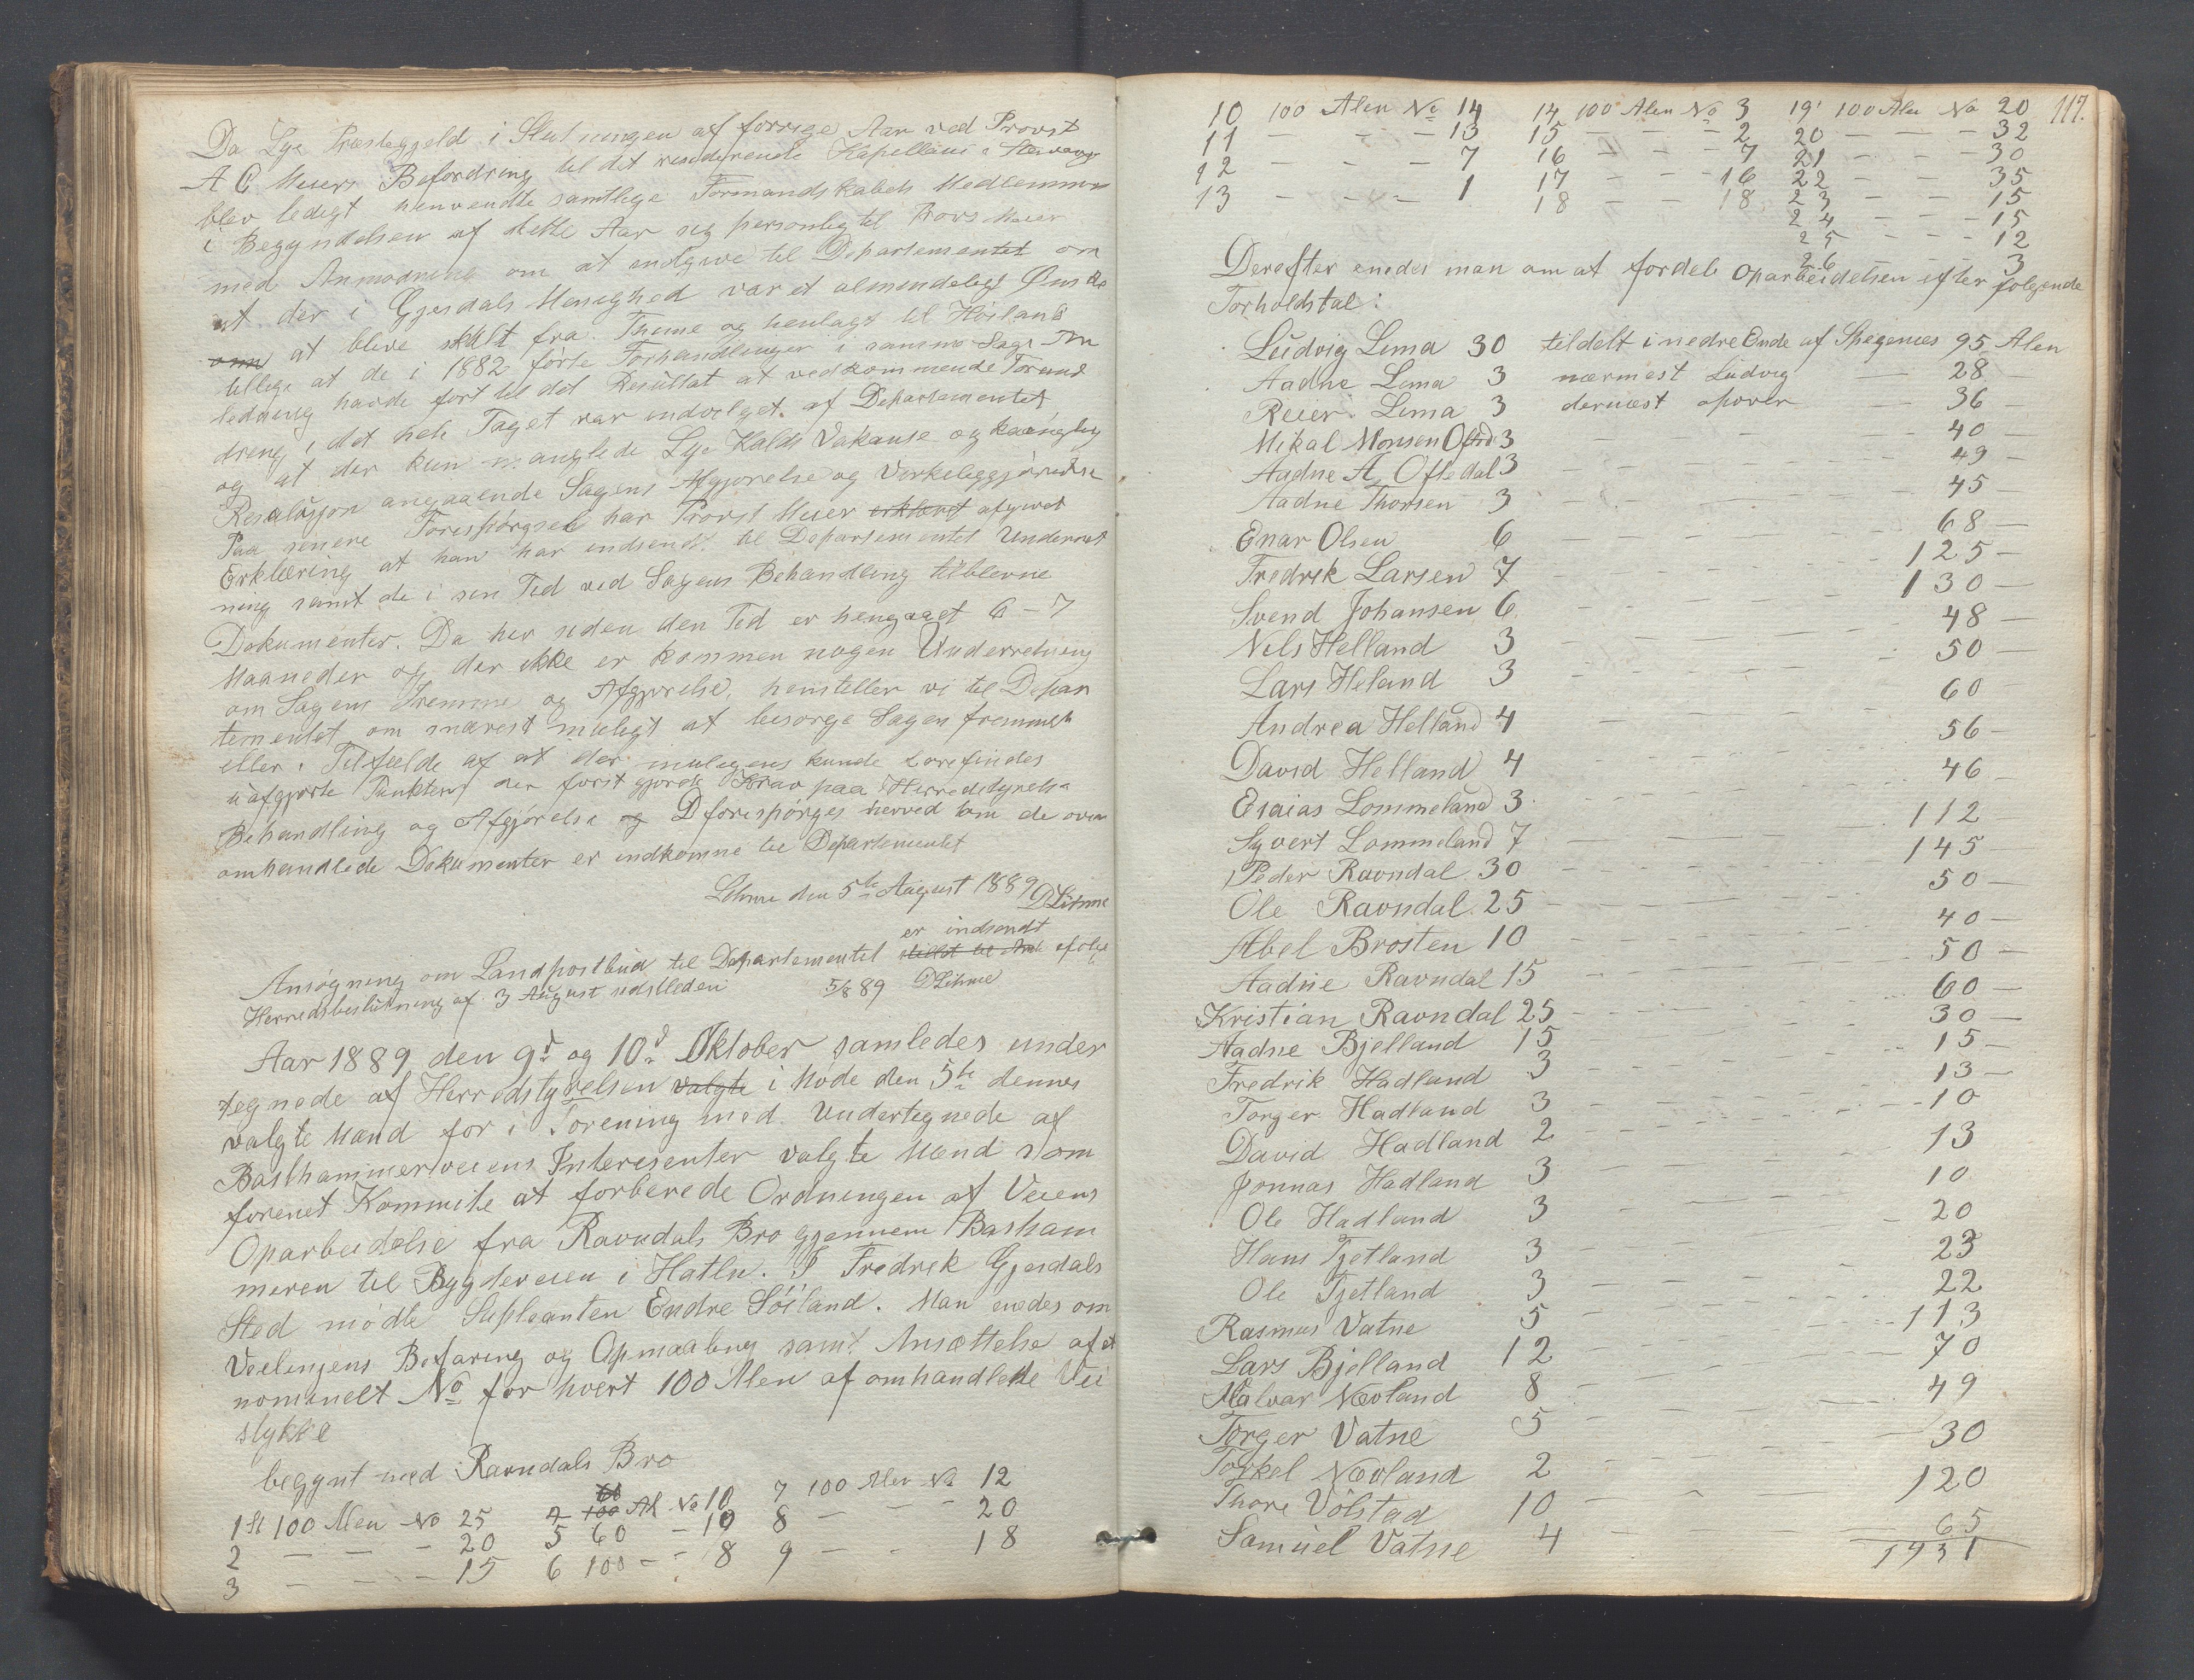 Da Lye Præstegjeld i Slutningen af forrige Aar ved Provst
A C Meiers Befordring til det residerende Kapellani i Stavanger
blev ledigt henvendte samtlige Formandskabets Medlemmer
i Begyndelsen af dette Aar sig personlig til Provs Meier
med Anmodning om at indgive til Departementet om
at der i Gjesdals Menighed var et almindeligt Ønske
om at blive skilt fra Thime og henlagt til Høiland
tillige at de i 1882 førte Forhandlinger i samme Sags An
ledning havde ført til det Resultat at vedkommende Forand
dring i det hele Taget var indvilget af Departementet
og at der kun manglede Lye Kalds Vakanse og kongelig
Resolusjon angaaende Sagens Afgjørelse og Virkeliggjørelse
Paa senere Forespørgsel har Provst Meier erklæret afgivet
Erklæring at han har indsendt til Departementet Underret
ning samt de i sin Tid ved Sagens Behandling tilblevne
Dokumenter. Da her siden den Tid er hengaaet 6 - 7
Maaneder og der ikke er kommen nogen Underretning
om Sagens Fremme og Afgjørelse, henstiller vi til Depar
tementet om snarest muligt at besørge Sagen fremmet
eller i Tilfælde af at der muligens kunde forefindes
uafgjorte Punkter der først gjorde Krav paa Herredstyrelse
Behandling og Afgjørelse og D forespørges herved om de oven
omhandlede Dokumenter er indkomne til Departementet
Lime den 5te August 1889 D Lihme
er indsendt
Ansøgning om Landpostbud til Departementet stillet til efølge
Herredsbeslutning af 3 August sidstleden 5/8 89 D Lihme
Aar 1889 den 9d og 10d Oktober samledes under
tegnede af Herredstyrelsen valgte i Møde den 5te dennes
valgte Mænd for i Forening med Undertegnede af
Basthammerveiens Interesenter valgte Mænd som
forenet Kommite at forberede Ordningen af Veiens
Oparbeidelse fra Ravndals Bro gjennem Basham
meren til Bygdeveien i Hatlu. I Fredrek Gjesdals
Sted mødte Supleanten Endre Söiland. Man enedes om
Veilinjens Befaring og Opmaaling samt Ansættelse af et
nominelt No for hvert 100 Alen af omhandlede Vei
stykke
begynt med Ravndals Bro
1st 100 Alen No 25 4 100 60 Al No 10 7 100 Alen No 12
2 - - - 20 5 60 - 19 8 - - - 20
3 - - - 15 6 100 - - 8 9 - - 18
117.
10 100 Alen No 14 14 100 Alen No 3 19 100 Alen No 20
11 - - - 13 15 - - - 2 20 - - - 32
12 - - - 7 16 - - - 7 21 - - - 30
13 - - - 1 17 - - - 16 22 - - 35
18 - - 18 23 - - 15
24 - - - 15
25 - - - 12
26 - - 3
Derefter enedes man om at fordele Oparbeidelsen efter følgende
Forholdstal:
Ludvig Lima 30 tildelt i nedre Ende af 95 Alen
Aadne Lima 3 nærmest Ludvig - 28 -
Reier Lima 3 dernæst opover - 36 -
Mikal Monsen Ofted 3 - 40 -
Aadne A. Oftedal 3 - 49 -
Aadne Thorsen 3 - 45 -
Enar Olsen 6 - 68 -
Fredrik Larsen 7 - 125 -
Svend Johansen 6 - 130 -
Nels Helland 3 - 48 -
Lars Heland 3 - 50 -
Andrea Helland 4 - 60 -
David Helland 4 - 56 -
Esaias Lommeland 3 - 46 -
Syvert Lommeland 7 - 112 -
Peder Ravndal 30 - 145 -
Ole Ravndal 25 - 50 -
Abel Brosten 10 - 40 -
Aadne Ravndal 15 - 50 -
Kristian Ravndal 25 - 60 -
Aadne Bjelland 15 - 30 -
Fredrik Hadland 3 - 15 -
Torger Hadland 3 - 13 -
David Hadland 2 - 10
Jonnas Hadland 3 - 13
Ole Hadland 3 - 10
Hans Tjetland 3 - 20
Ole Tjetland 3 - 23
Rasmus Vatne 5 - 22
Lars Bjelland 12 - 113
Malvar Nævland 8 - 70
Torger Vatne 5 - 49
Torkel Nævland 2 - 30
Thore Völstad 10 - 120
Samuel Vatne 4 - 65
1931